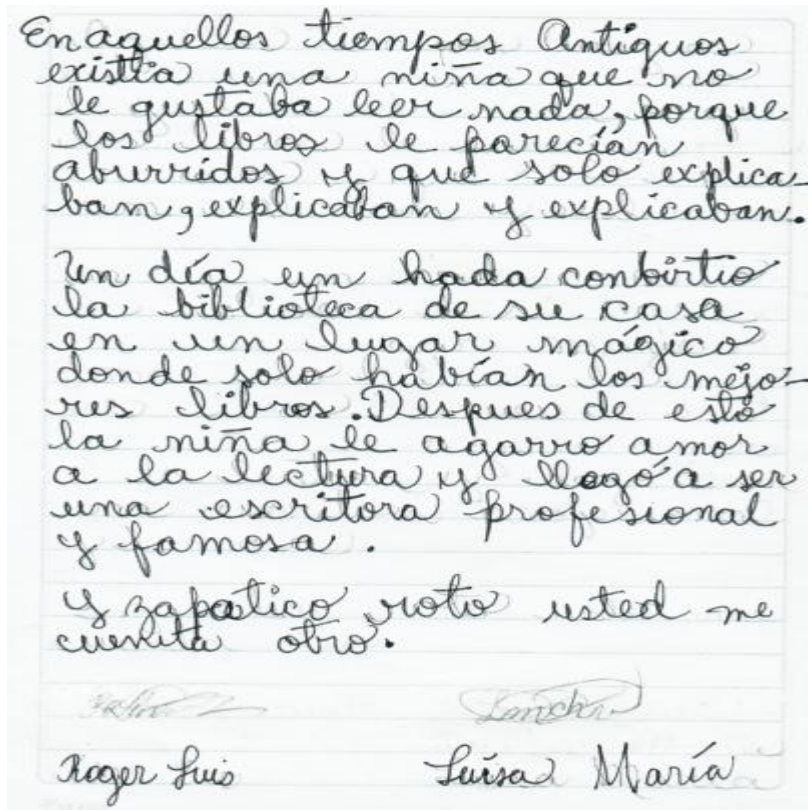 En aquellos tiempos Antiguos
existía una niña que no
le gustaba leer nada, porque
los libros le parecían
aburridos y que solo explica-
ban, explicaban y explicaban.
Un día un hada conbirtio
la biblioteca de su casa
en un lugar mágico
donde solo habían los mejo-
res libros. Despues de esto
la niña le agarro amor
a la lectura y llegó a ser
una escritora profesional
y famosa.
Y zapatico roto usted me
cuenta otro.
Roger Luis Luisa María